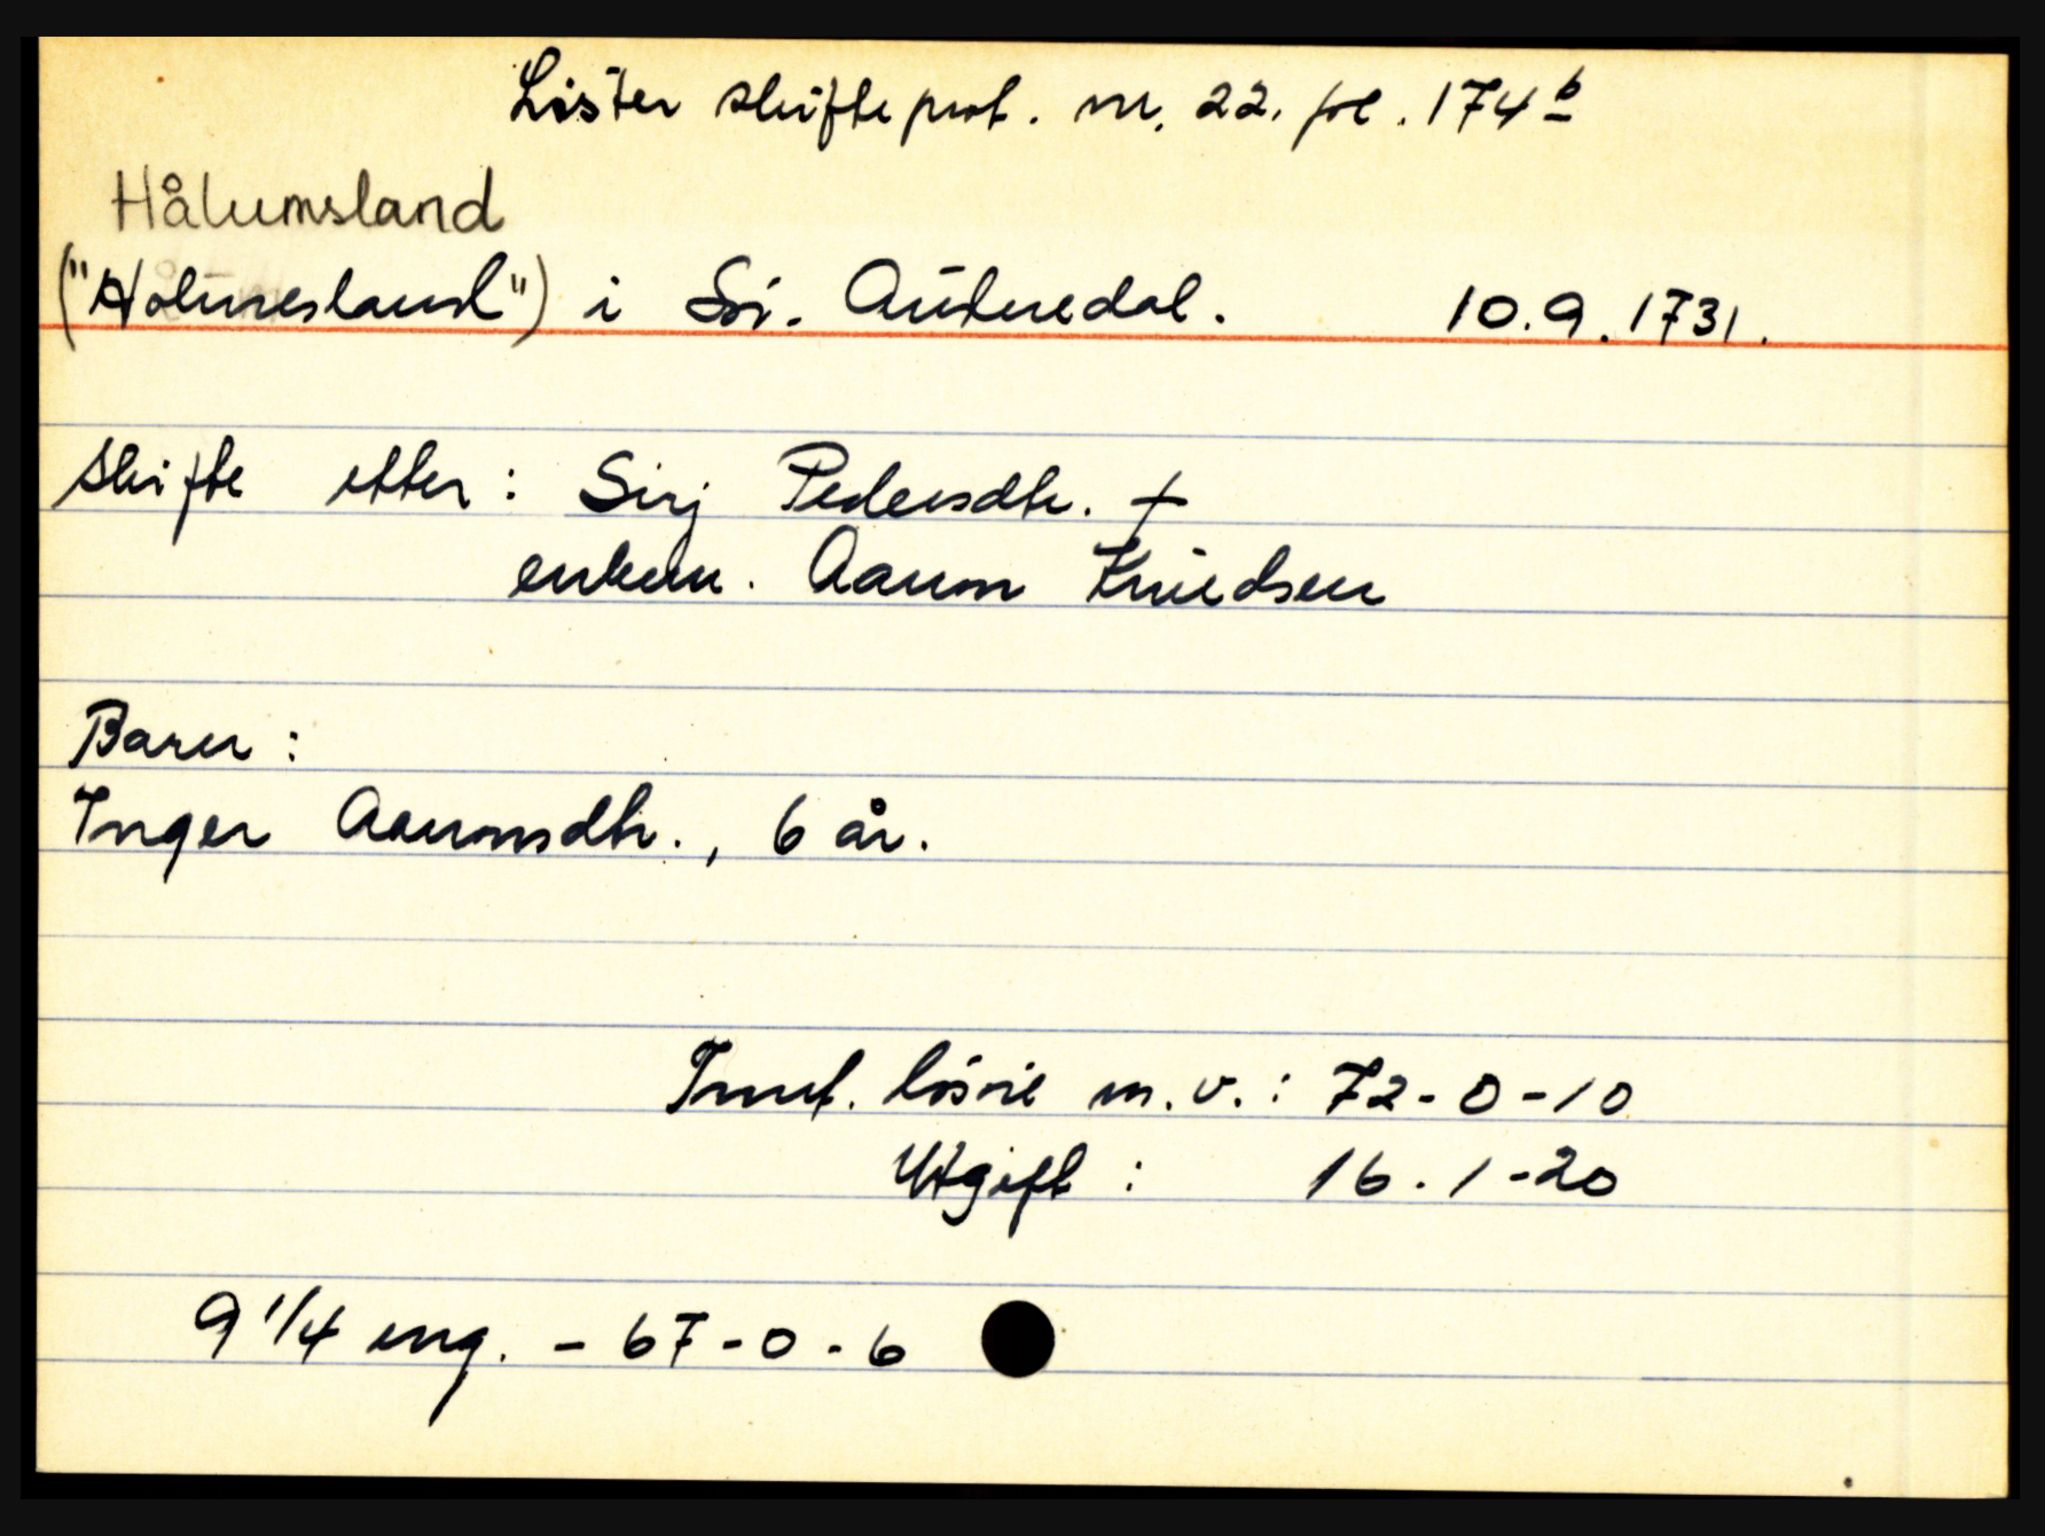 Lister skifteprot. nr. 22. fol. 174 b
Hålumsland
("Holmesland") i Sø. Audnedal. 10.9.1731.
Skifte etter: Sirj Pedersdtr. +
enkem. Aanon Knudsen
Barn:
Inger Aanonsdtr., 6 år.
Innt. løsøre m.v.: 72-0-10
Utgift: 16.1-20
9 1/4 eng. - 67-0-6